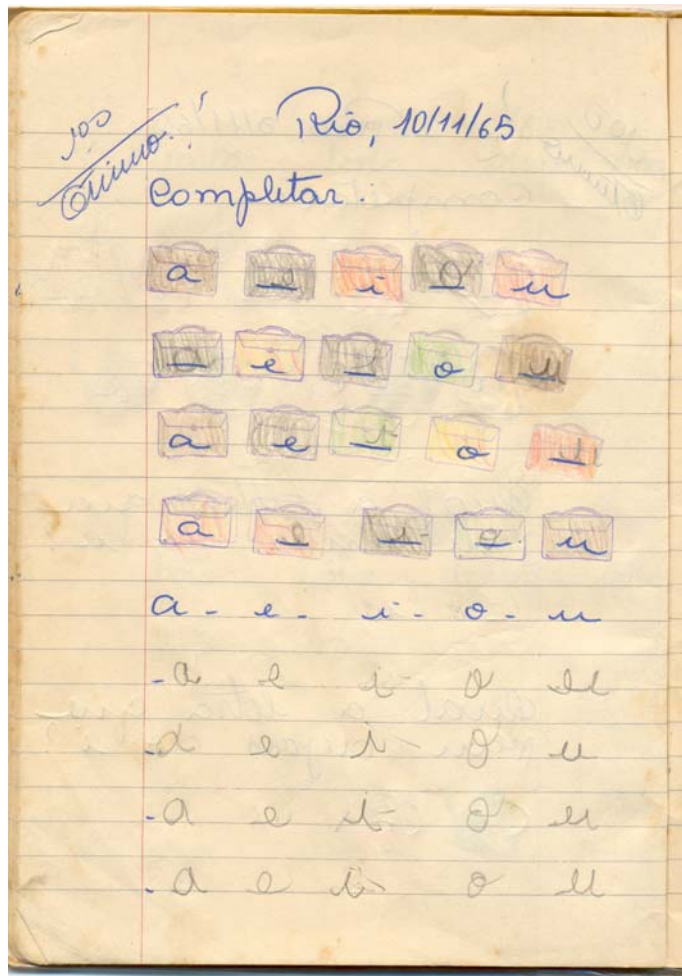 100
Ótimo!
Rio, 10/11/65
Completar:
a e i o u
a e i o u
a e i o u
a e i o u
a - e - i - o - u
- a e i o u
- a e i o u
- a e i o u
- a e i o u